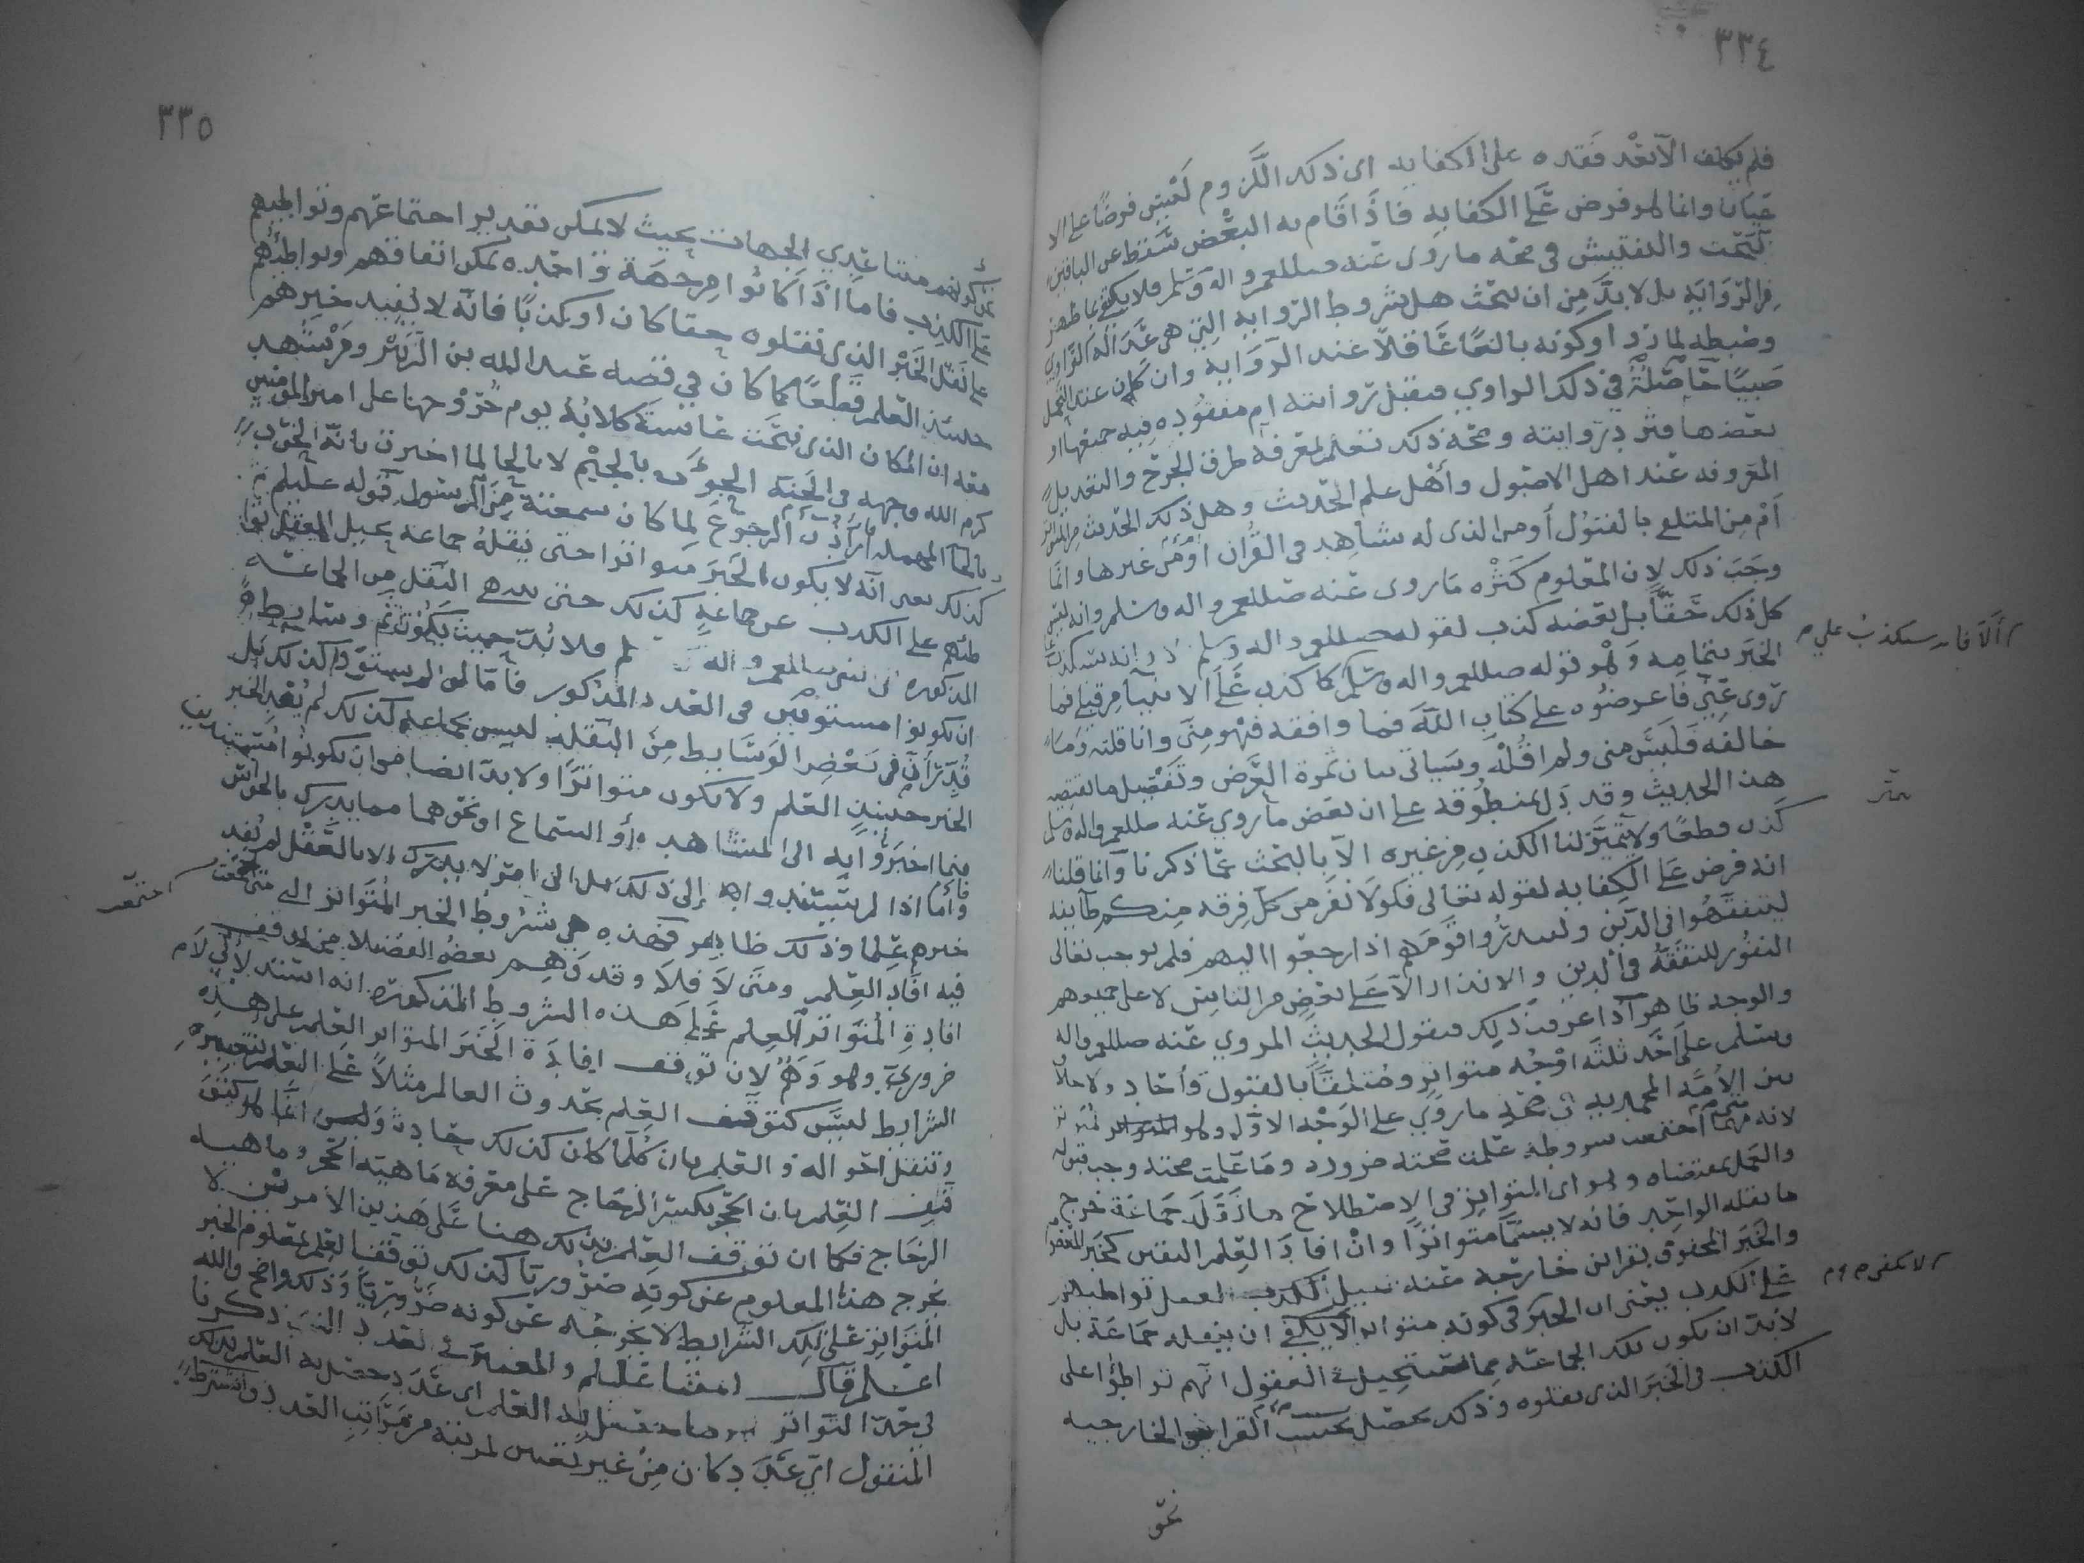 ٣٣٤
فلم يكلف الا بعد فقده على الكفايه اى ذلك اللزوم ليس فرضًا على الا
عيان وانما هو فرض على الكفايه فاذا قام به البعض سقط عن الباقين
البحث والتفتيش فى صحه ما روى عنه صللعم واله وسلم فلا يكتفى بما ظهر
من الروايه بل لا بد من ان يبحث هل شروط الروايه التى هى عداله الراوي
وضبطه لما روا وكونه بالغًا عاقلاً عند الروايه وان كان عند التحمل
صبيًا حاصلة في ذلك الراوي فيقبل روايته ام مفقوده فيه جميعها او
بعضها فترد روايته وصحة ذلك تعلم بمعرفة طرف الجرح والتعديل
المعروفه عند اهل الاصول وأهل علم الحديث وهل ذلك الحديث من المتواتر
أم من المتلقى بالقبول أو من الذى له شاهد فى القران او من غيرها وانما
وجب ذلك لان المعلوم كثره ما روى عنه صللعم واله وسلم وانه ليس
كل ذلك حقًا بل بعضه كذب لقوله صللعم واله وسلم
الا فانه سيكذب علي
الخبر بتمامه وهو قوله صللعم واله وسلم كما كذب على الانبيا من قبلي فما
روى عني فاعرضوه على كتاب الله فما وافقه فهو مني وانا قلته وما
خالفه فليس منى ولم اقله وسياتى بيان ثمرة العرض وتفصيل ما تضمنه
هذا الحديث وقد دل بمنطوقه على ان بعض ما روي عنه صللعم واله وسلم
كذب قطعًا ولا يتميز لنا الكذب من غيره الا بالبحث عما ذكرنا وانما قلنا
انه فرض على الكفايه لقوله تعالى فلولا نفر من كل فرقه منهم طآيفه
ليتفقهوا فى الدين ولينذروا قومهم اذا رجعوا اليهم فلم يوجب تعالى
النفور للتفقه فى الدين والانذار الا على بعض من الناس لا على جميعهم
والوجه ظاهر اذا عرفت ذلك فنقول الحديث المروي عنه صللعم واله
وسلم على احد ثلثه اوجه متواتر ومتلقًا بالقبول وأحاد ولا خلاف
بين الامه المحمديه فى صحة ما روي على الوجه الاول وهو المتواتر
لانه مهما اجتمعت شروطه علمت صحته ضرورة وما علمت صحته وجب قبوله
والعمل بمقتضاه وهو اى المتواتر فى الاصطلاح ما نقله جماعة خرج
ما نقله الواحد فانه لا يسمى متواترًا وان افاد العلم اليقين كخبر المعصوم
والخبر المحفوف بقراين خارجه عنه
على الكذب يعنى ان الخبر فى كونه متواترا لا يكفى ان ينقله جماعة بل
لا يكفى
لا بد ان يكون تلك الجماعه مما تستحيل فى العقول انهم تواطؤا على
الكذب فى الخبر الذى نقلوه وذلك يحصل بحسب القراين الخارجيه
نحو
٣٣٥
كونهم متباعدي الجهات بحيث لا يمكن تقدير اجتماعهم وتواطيهم
على الكذب فاما اذا كانوا من جهة واحده يمكن اتفاقهم وتواطئهم
على نقل الخبر الذى نقلوه حقا كان او كذبًا فانه لا يفيد خبرهم
حينئذ العلم قطعًا كما كان في قصه عبدالله بن الزبير ومن شهد
معه ان المكان الذى نبحت عايشة كلابه يوم خروجها على امير المومنين
كرم الله وجهه فى الجنه الجوب بالجيم لا بالحا لما اخبرت بانه الحوب
بالحا المهمله وارادت الرجوع لما كان سمعته من الرسول قوله عليلم
كذلك نعم انه لا يكون الخبر متواترا حتى ينقله جماعه يحيل العقل تواـ
طئهم على الكذب عن جماعة كذلك حتى ينتهى النقل من الجماعه
المذكوره الى النبى صللعم واله وسلم فلا بد حيث يكون ثم وسايط
ان يكونوا مستويين فى العدد المذكور فأما لو لم يستووا كذلك بل
قدر أن فى بعض الوسايط من النقله ليس بجماعه كذلك لم يفد الخبر
الخبر حينئذ العلم ولا يكون متواترًا ولا بد ايضا من ان يكونوا مستندين
فيما اخبروا به الى المشاهده أو السماع او نحوهما مما يدرك بالحواس
فأما اذا لم يستندوا به الى ذلك بل الى امر لا يدرك الا بالعقل لم يفد
خبرهم علما وذلك ظاهر فهذه هي شروط الخبر المتواتر التى متى اجتمعت
اجتمعت
فيه افاد العلم ومتى لا فلا وقد وهم بعض الفضلا
افادة المتواتر العلم على هذه الشروط المذكوره انه استدلالي لا
ضروري وهو وهم لان توقف افادة الخبر المتواتر العلم على هذه
الشرايط ليس كتوقف العلم بحدوث العالم مثلاً على العلم بتغييره
وتنقل احواله والعلم بان كلما كان كذلك حادث وليس انما هو كتوقف
العلم بان الحجر يكسر الزجاج على معرفة ماهيه الحجر وماهيه
الزجاج فكما ان توقف العلم بذلك هنا على هذين الامرين لا
يخرج هذا المعلوم عن كونه ضروريا كذلك توقف العلم بمعلوم الخبر
المتواتر على تلك الشرايط لا يخرجه عن كونه ضروريًا وذلك واضح والله
اعلم قال امتنا عليلم والمعتبر فى تعدد الذى ذكرنا
في حد التواتر هو ما حصل به العلم اى عدد حصل به العلم بذلك
المنقول اي عدد كان من غير تعين لمرتبه من مراتب العدد